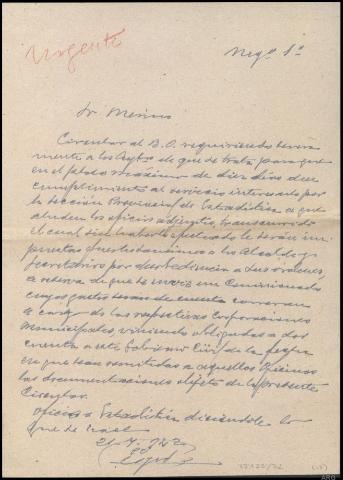 Urgente
Negº 1º
Sr Merino
Circular al B.O. requiriendo severa
mente a los Aytos de que se trata para que
en el plazo máximo de diez días den
cumplimiento al servicio interesado por
la Sección Provincial de Estadística a que
aluden los oficios adjuntos, transcurrido
el cual sin haberlo efectuado le serán im
puestas a los Alcaldes y
Secretarios por desobediencia a sus órdenes,
a reserva de que se envíe un Comisionado
cuyos gastos serán de cuenta correran
a cargo de las respectivas Corporaciones
Municipales, viniendo obligadas a dar
cuenta a este Gobierno Civil de la fecha
en que sean remitidas a aquellas Oficinas
las documentaciones objeto de la presente
Circular.
Oficio a Estadística diciéndole lo
que se hace
21-7-942